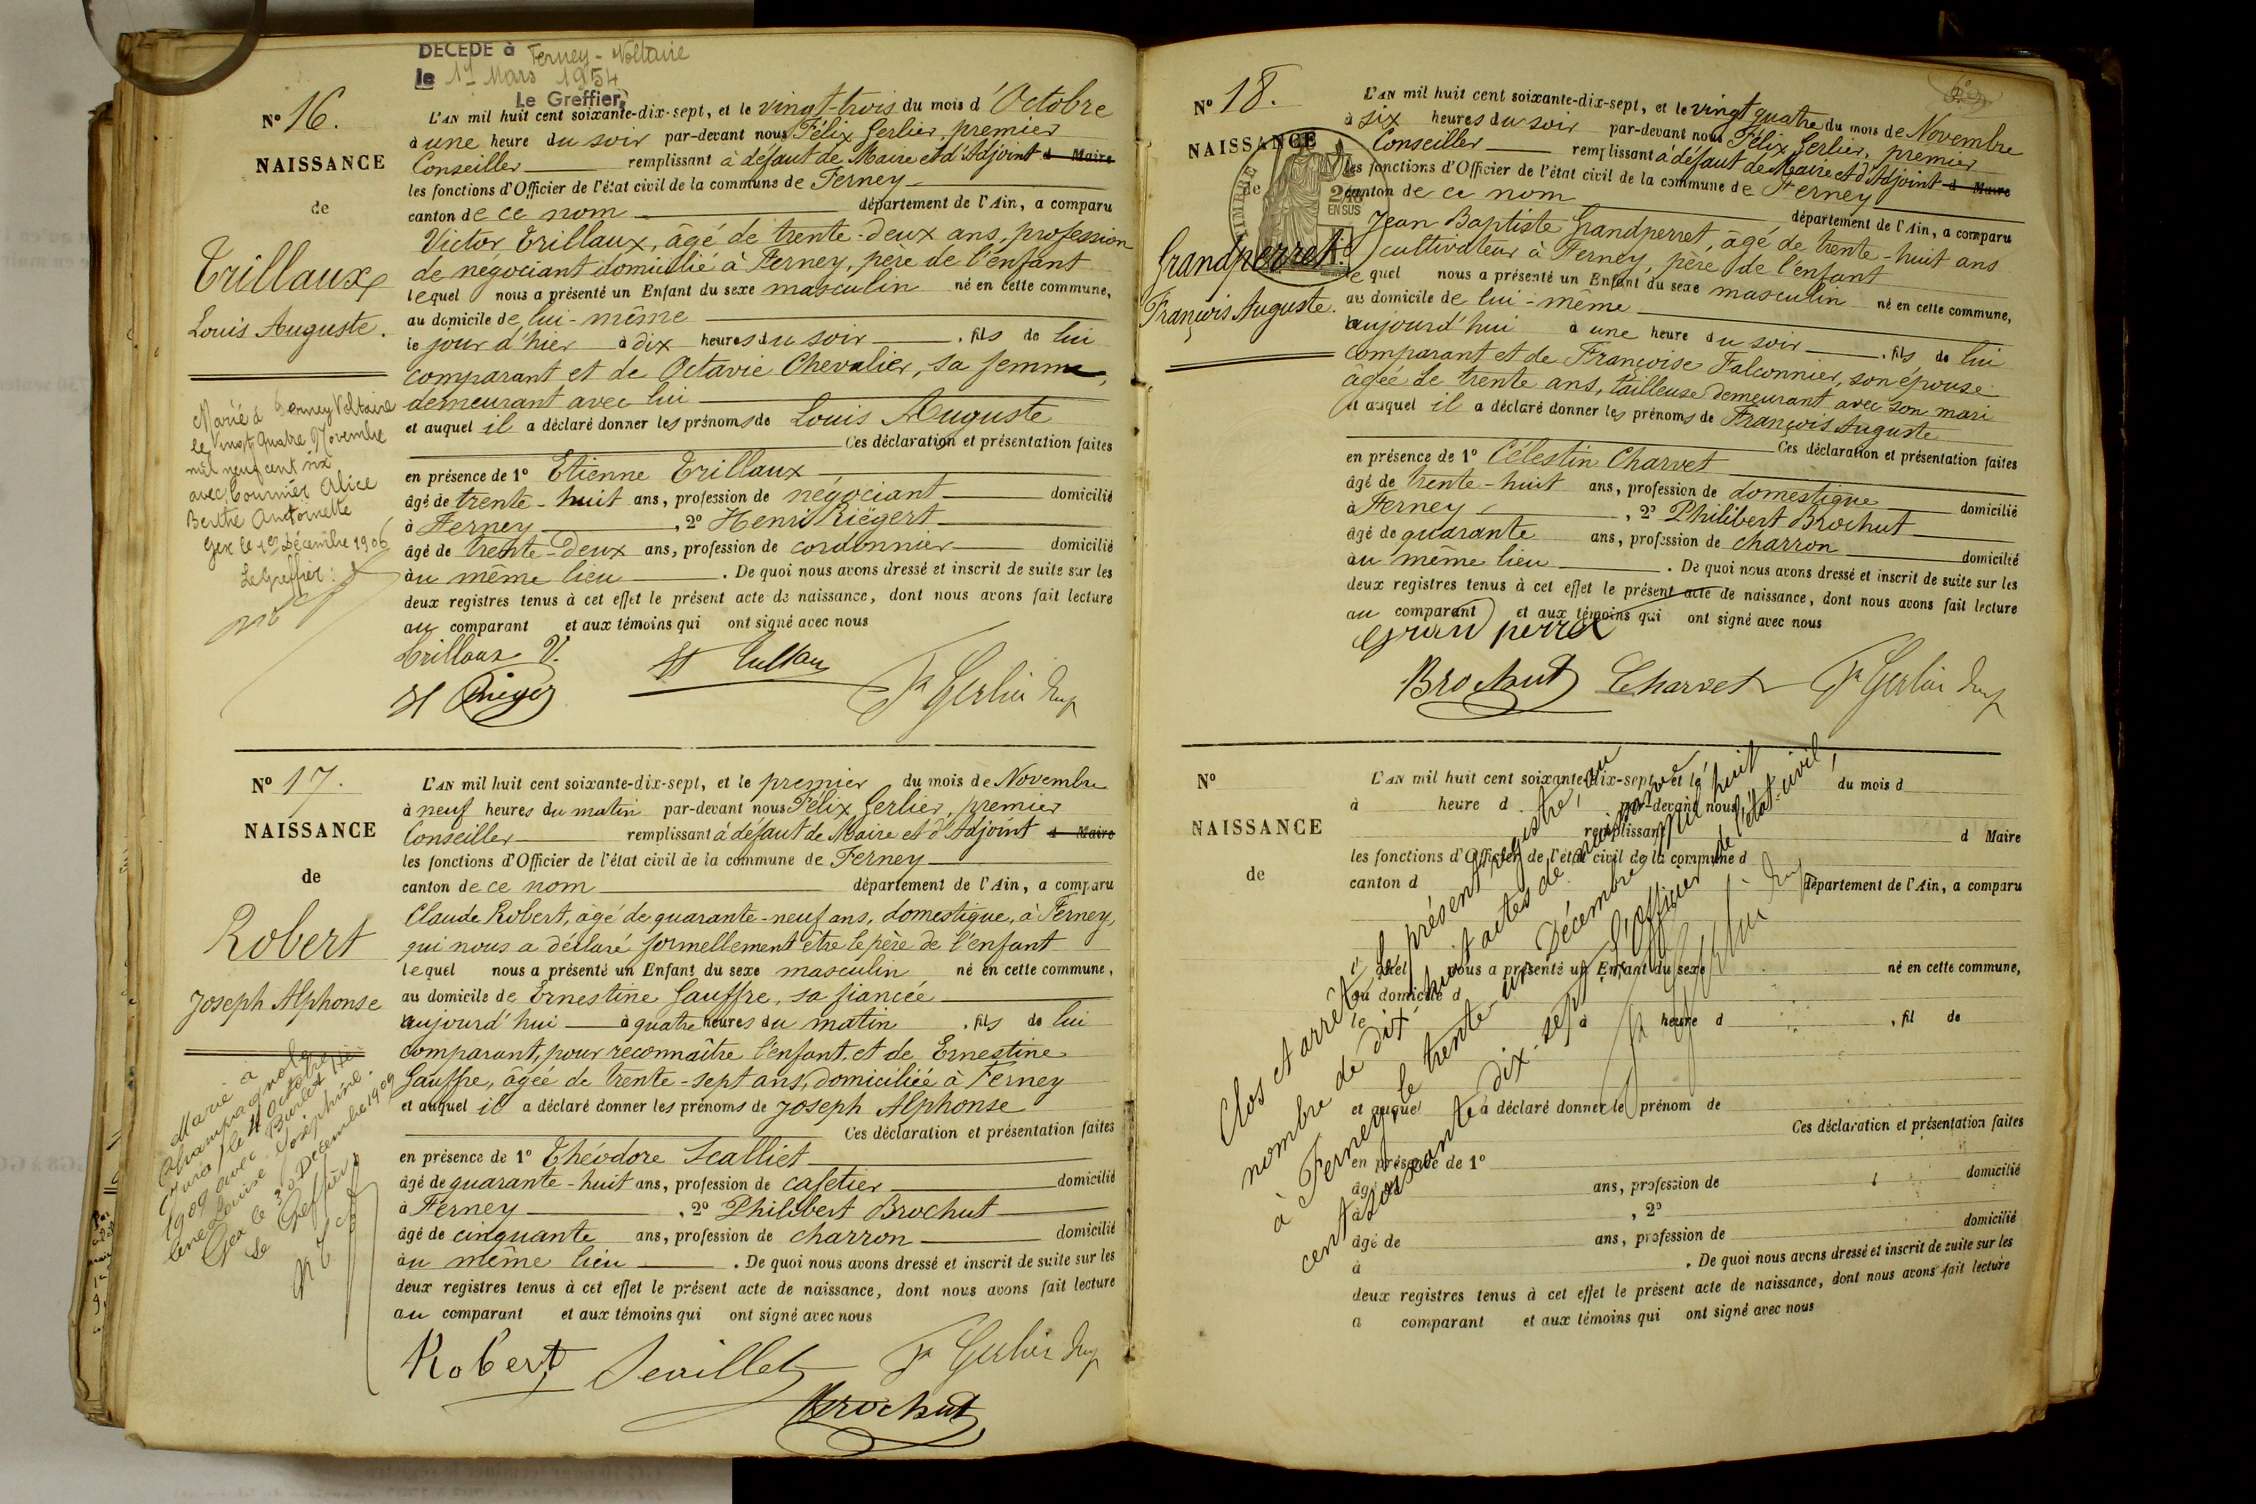 DÉCÉDÉ à Ferney-Voltaire
le 17 Mars 1954
Le Greffier,
N° 16.
NAISSANCE
de
Trillaux
Louis Auguste.
Marié à Ferney Voltaire
le vingt quatre Novembre
mil neuf cent six
avec Tournier Alice
Berthe Antoinette
Gex le 1er Décembre 1906
Le Greffier :
L'AN mil huit cent soixante-dix-sept, et le vingt-trois du mois d'Octobre
à une heure du soir par-devant nous Félix Gerlier, premier
Conseiller remplissant à défaut de Maire et d'Adjoint d Maire
les fonctions d'Officier de l'état civil de la commune de Ferney
canton de ce nom département de l'Ain, a comparu
Victor Trillaux, âgé de trente-deux ans, profession
de négociant domicilié à Ferney, père de l'enfant
lequel nous a présenté un Enfant du sexe masculin né en cette commune,
au domicile de lui-même
le jour d'hier à dix heures du soir , fils de lui
comparant et de Octavie Chevalier, sa femme,
demeurant avec lui
et auquel il a déclaré donner les prénoms de Louis Auguste
Ces déclaration et présentation faites
en présence de 1° Etienne Trillaux
âgé de trente-huit ans, profession de négociant domicilié
à Ferney , 2° Henri Riégert
âgé de trente-deux ans, profession de cordonnier domicilié
au même lieu . De quoi nous avons dressé et inscrit de suite sur les
deux registres tenus à cet effet le présent acte de naissance, dont nous avons fait lecture
au comparant et aux témoins qui ont signé avec nous
Trillaux V.
F. Gerlier
N° 17.
NAISSANCE
de
Robert
Joseph Alphonse
Marié à
Champagnole
Jura, le 4 Octobre
1909 avec Burlet
Louise Joséphine.
Gex le 30 Décembre 1909
Le Greffier,
L'AN mil huit cent soixante-dix-sept, et le premier du mois de Novembre
à neuf heures du matin par-devant nous Félix Gerlier, premier
Conseiller remplissant à défaut de Maire et d'Adjoint d Maire
les fonctions d'Officier de l'état civil de la commune de Ferney
canton de ce nom département de l'Ain, a comparu
Claude Robert, âgé de quarante-neuf ans, domestique, à Ferney,
qui nous a déclaré formellement être le père de l'enfant
lequel nous a présenté un Enfant du sexe masculin né en cette commune,
au domicile de Ernestine Gauffre, sa fiancée
aujourd'hui à quatre heures du matin , fils de lui
comparant, pour reconnaître l'enfant, et de Ernestine
Gauffre, âgée de trente-sept ans, domiciliée à Ferney
et auquel il a déclaré donner les prénoms de Joseph Alphonse
Ces déclaration et présentation faites
en présence de 1° Théodore Scalliet
âgé de quarante-huit ans, profession de cafetier domicilié
à Ferney , 2° Philibert Brochut
âgé de cinquante ans, profession de charron domicilié
au même lieu . De quoi nous avons dressé et inscrit de suite sur les
deux registres tenus à cet effet le présent acte de naissance, dont nous avons fait lecture
au comparant et aux témoins qui ont signé avec nous
Robert
F. Gerlier
Brochut
N° 18.
NAISSANCE
de
TIMBRE
2/10
EN SUS
Grandperret.
François Auguste.
L'AN mil huit cent soixante-dix-sept, et le vingt quatre du mois de Novembre
à six heures du soir par-devant nous Félix Gerlier, premier
Conseiller remplissant à défaut de Maire et d'Adjoint d Maire
les fonctions d'Officier de l'état civil de la commune de Ferney
canton de ce nom département de l'Ain, a comparu
Jean Baptiste Grandperret, âgé de trente-huit ans
cultivateur à Ferney, père de l'enfant
lequel nous a présenté un Enfant du sexe masculin né en cette commune,
au domicile de lui-même
aujourd'hui à une heure du soir , fils de lui
comparant et de Françoise Falconnier, son épouse
âgée de trente ans, tailleuse demeurant avec son mari
et auquel il a déclaré donner les prénoms de François Auguste
Ces déclaration et présentation faites
en présence de 1° Célestin Charvet
âgé de trente-huit ans, profession de domestique domicilié
à Ferney , 2° Philibert Brochut
âgé de quarante ans, profession de charron domicilié
au même lieu . De quoi nous avons dressé et inscrit de suite sur les
deux registres tenus à cet effet le présent acte de naissance, dont nous avons fait lecture
au comparant et aux témoins qui ont signé avec nous
Grand perret
Brochut Charvet F. Gerlier
N°
NAISSANCE
de
L'AN mil huit cent soixante-dix-sept, et le du mois d
à heure d par-devant nous
remplissant d Maire
les fonctions d'Officier de l'état civil de la commune d
canton d département de l'Ain, a comparu
quel nous a présenté un Enfant du sexe né en cette commune,
au domicile d
le à heure d , fil de
et auquel a déclaré donner le prénom de
Ces déclaration et présentation faites
en présence de 1°
âgé de ans, profession de domicilié
à , 2°
âgé de ans, profession de domicilié
à . De quoi nous avons dressé et inscrit de suite sur les
deux registres tenus à cet effet le présent acte de naissance, dont nous avons fait lecture
a comparant et aux témoins qui ont signé avec nous
Clos et arrêté le présent registre, au
nombre de dix-huit actes de naissance
à Ferney, le trente-un Décembre mil huit
cent soixante dix-sept. L'Officier de l'état-civil,
F. Gerlier